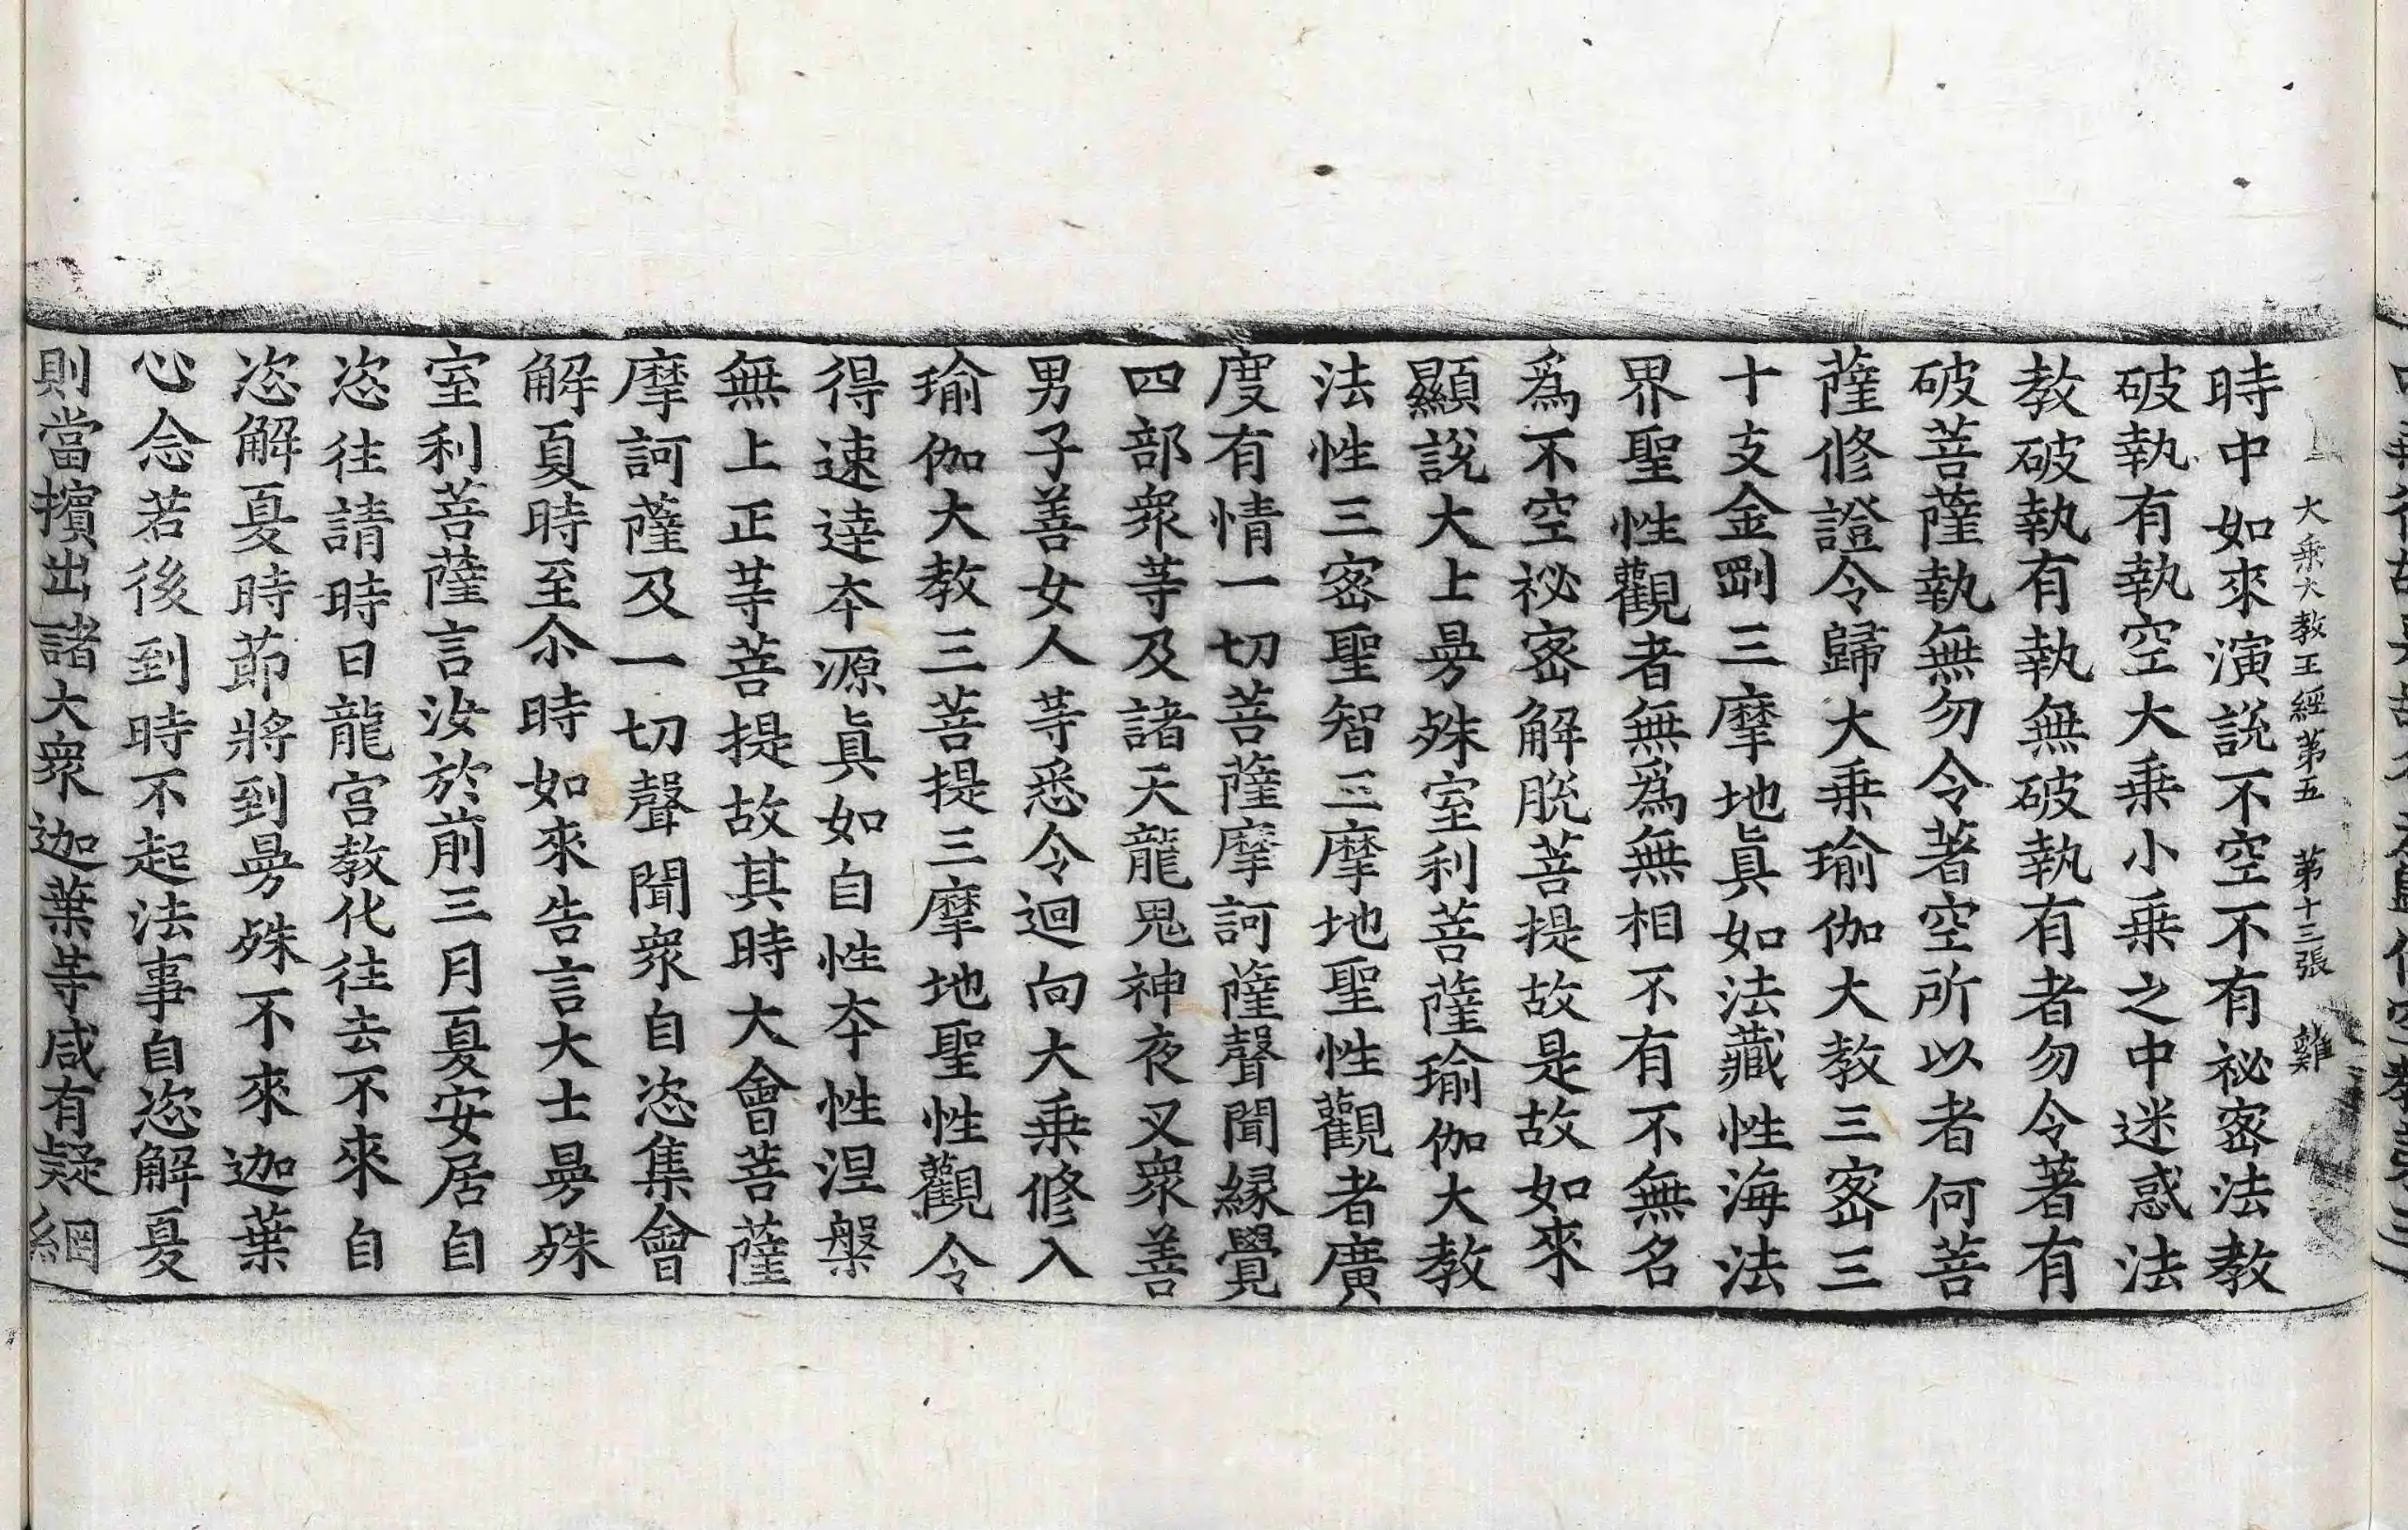 大乘大教王經第五 第十三張 難
時中如來演說不空不有祕密法教
破執有執空大乘小乘之中迷惑法
教破執有執無破執有者勿令著有
破菩薩執無勿令著空所以者何菩
薩修證令歸大乘瑜伽大教三密三
十支金剛三摩地真如法藏性海法
界聖性觀者無爲無相不有不無名
爲不空祕密解脫菩提故是故如來
顯說大上曼殊室利菩薩瑜伽大教
法性三密聖智三摩地聖性觀者廣
度有情一切菩薩摩訶薩聲聞緣覺
四部衆等及諸天龍鬼神夜叉衆善
男子善女人等悉令迴向大乘修入
瑜伽大教三菩提三摩地聖性觀令
得速達本源真如自性本性涅槃
無上正等菩提故其時大會菩薩
摩訶薩及一切聲聞衆自恣集會
解夏時至尒時如來告言大士曼殊
室利菩薩言汝於前三月夏安居自
恣往請時日龍宮教化往去不來自
恣解夏時節將到曼殊不來迦葉
心念若後到時不起法事自恣解夏
則當擯出諸大衆迦葉等咸有疑網